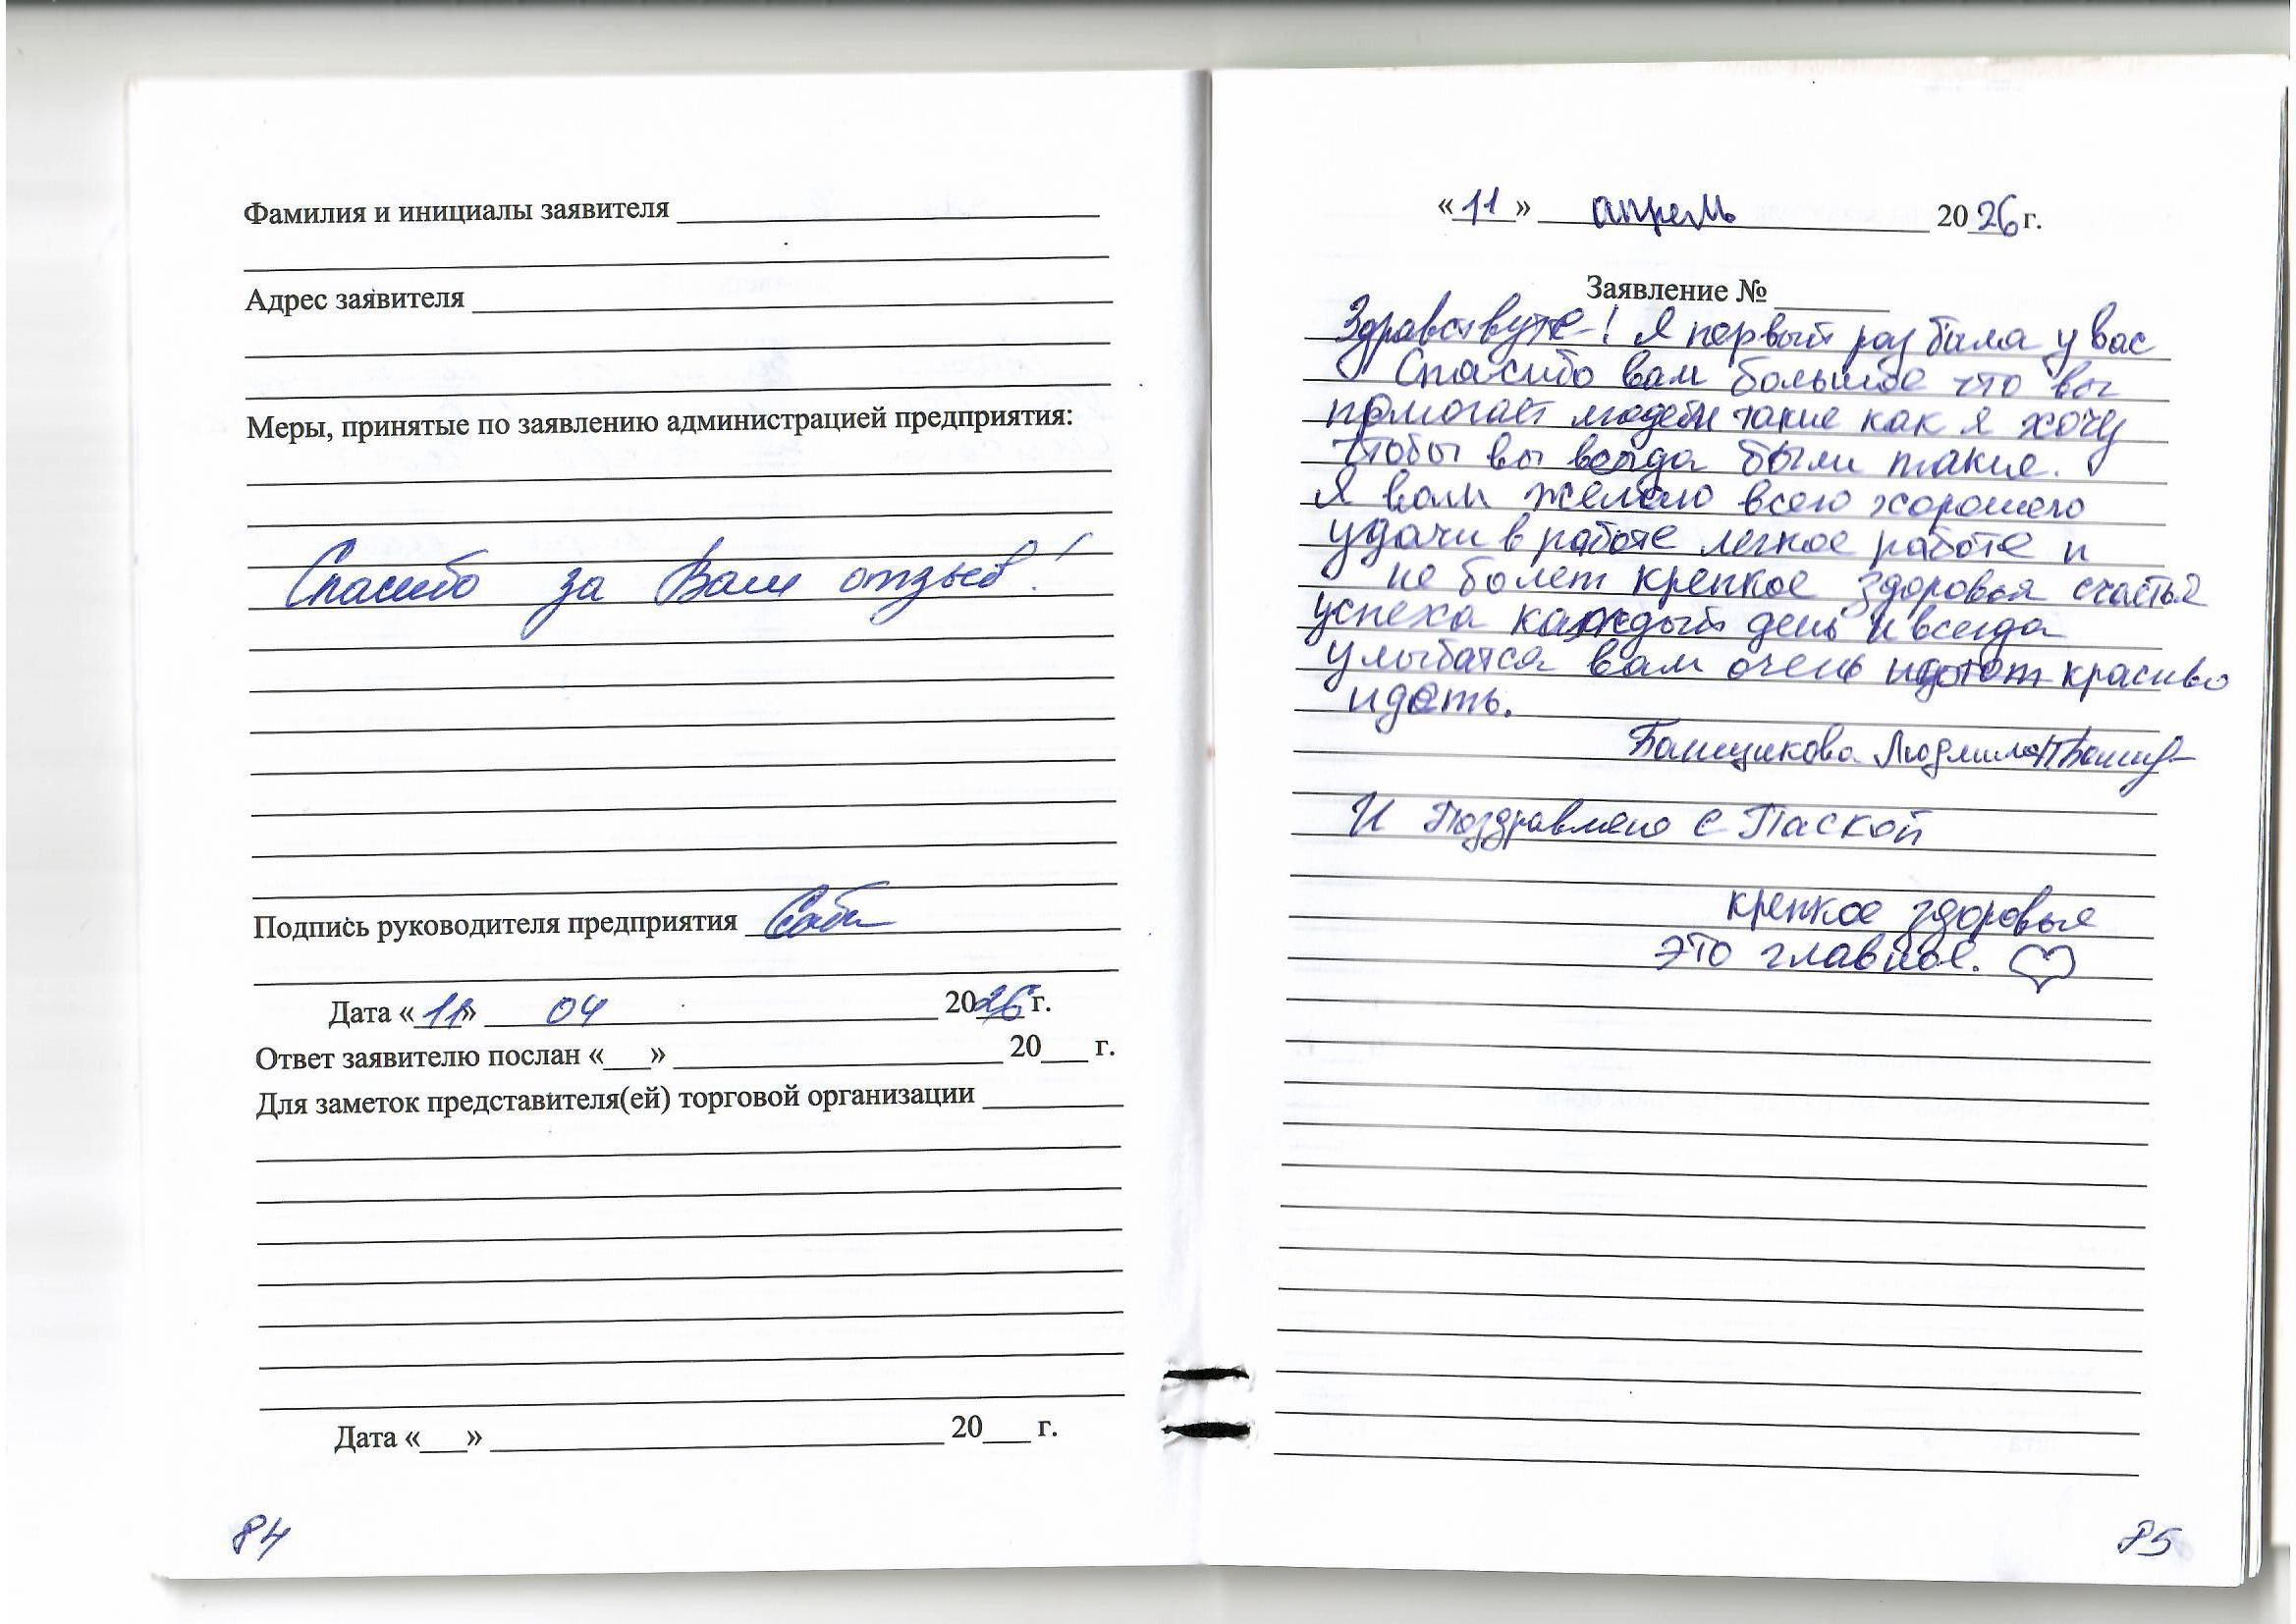 Фамилия и инициалы заявителя
Адрес заявителя
Меры, принятые по заявлению администрацией предприятия:
Спасибо за Ваш отзыв!
Подпись руководителя предприятия
Дата «11» 04 2026 г.
Ответ заявителю послан «___» 20___ г.
Для заметок представителя(ей) торговой организации
Дата «___» 20___ г.
84
«11» апрель 2026 г.
Заявление №
Здравствуте! Я первый раз была у вас
Спасибо вам большое что вы
помогает людям такие как я хочу
чтобы вы всегда были такие.
Я вам желаю всего хорошего
удачи в работе легкое работе и
не болет крепкое здоровья счастья
успеха каждый день и всегда
улыбатся вам очень идотот красиво
идоть.
Банщикова Людмила
И Поздравляю с Паской
крепкое здоровье
это главное.
85